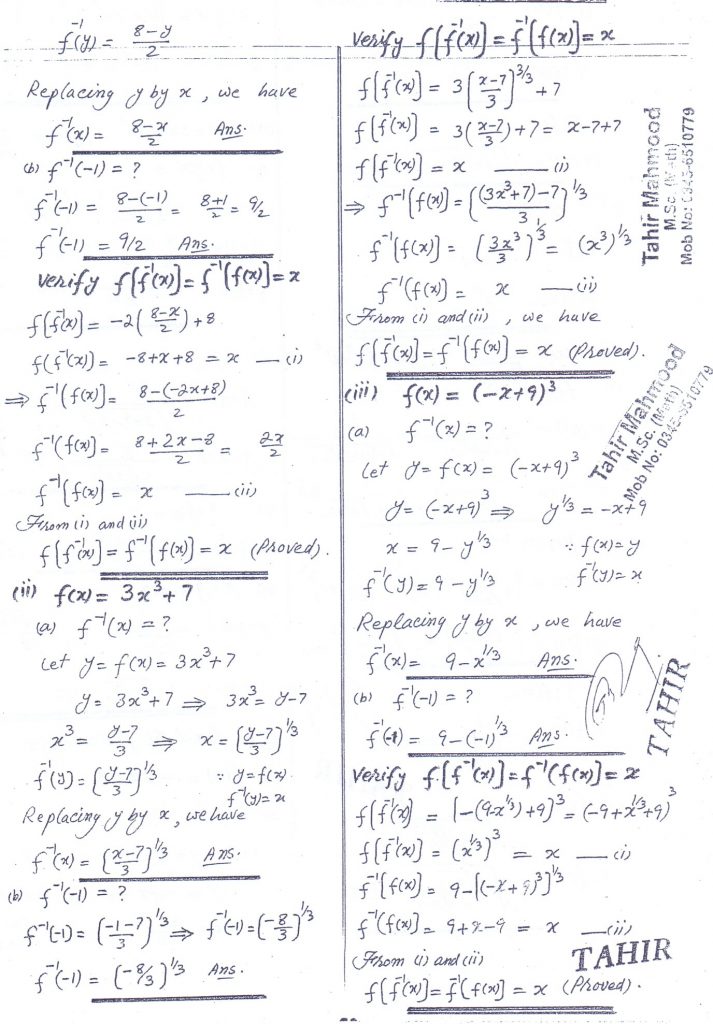 f⁻¹(y) = (8-y)/2
Replacing y by x, we have
f⁻¹(x) = (8-x)/2 Ans.
(b) f⁻¹(-1) = ?
f⁻¹(-1) = (8-(-1))/2 = (8+1)/2 = 9/2
f⁻¹(-1) = 9/2 Ans.
Verify f[f⁻¹(x)] = f⁻¹[f(x)] = x
f[f⁻¹(x)] = -2((8-x)/2) + 8
f(f⁻¹(x)] = -8+x+8 = x — (i)
⇒ f⁻¹(f(x)] = (8-(-2x+8))/2
f⁻¹(f(x)] = (8+2x-8)/2 = 2x/2
f⁻¹[f(x)] = x — (ii)
From (i) and (ii)
f[f⁻¹(x)] = f⁻¹[f(x)] = x (Proved).
(ii) f(x) = 3x³+7
(a) f⁻¹(x) = ?
Let y = f(x) = 3x³+7
y = 3x³+7 ⇒ 3x³ = y-7
x³ = (y-7)/3 ⇒ x = [(y-7)/3]^1/3
f⁻¹(y) = [(y-7)/3]^1/3 ∵ y = f(x)
f⁻¹(y) = x
Replacing y by x, we have
f⁻¹(x) = ((x-7)/3)^1/3 Ans.
(b) f⁻¹(-1) = ?
f⁻¹(-1) = ((-1-7)/3)^1/3 ⇒ f⁻¹(-1) = (-8/3)^1/3
f⁻¹(-1) = (-8/3)^1/3 Ans.
Verify f[f⁻¹(x)] = f⁻¹[f(x)] = x
f[f⁻¹(x)] = 3((x-7)/3)^3/3 + 7
f[f⁻¹(x)] = 3((x-7)/3) + 7 = x-7+7
f[f⁻¹(x)] = x — (i)
⇒ f⁻¹[f(x)] = (((3x³+7)-7)/3)^1/3
f⁻¹[f(x)] = (3x³/3)^1/3 = (x³)^1/3
f⁻¹(f(x)] = x — (ii)
From (i) and (ii), we have
f[f⁻¹(x)] = f⁻¹[f(x)] = x (Proved).
(iii) f(x) = (-x+9)³
(a) f⁻¹(x) = ?
Let y = f(x) = (-x+9)³
y = (-x+9)³ ⇒ y^1/3 = -x+9
x = 9 - y^1/3 ∵ f(x) = y
f⁻¹(y) = 9 - y^1/3 f⁻¹(y) = x
Replacing y by x, we have
f⁻¹(x) = 9 - x^1/3 Ans.
(b) f⁻¹(-1) = ?
f⁻¹(-1) = 9 - (-1)^1/3 Ans.
Verify f[f⁻¹(x)] = f⁻¹(f(x)] = x
f[f⁻¹(x)] = [-(9-x^1/3)+9]³ = (-9+x^1/3+9)³
f[f⁻¹(x)] = (x^1/3)³ = x — (i)
f⁻¹[f(x)] = 9-[(-x+9)³]^1/3
f⁻¹(f(x)] = 9+x-9 = x — (ii)
From (i) and (ii)
f[f⁻¹(x)] = f⁻¹(f(x)] = x (Proved).
Tahir Mahmood
M.Sc. (Math)
Mob No: 0345-6510779
Tahir Mahmood
M.Sc. (Math)
Mob No: 0345-6510779
TAHIR
TAHIR